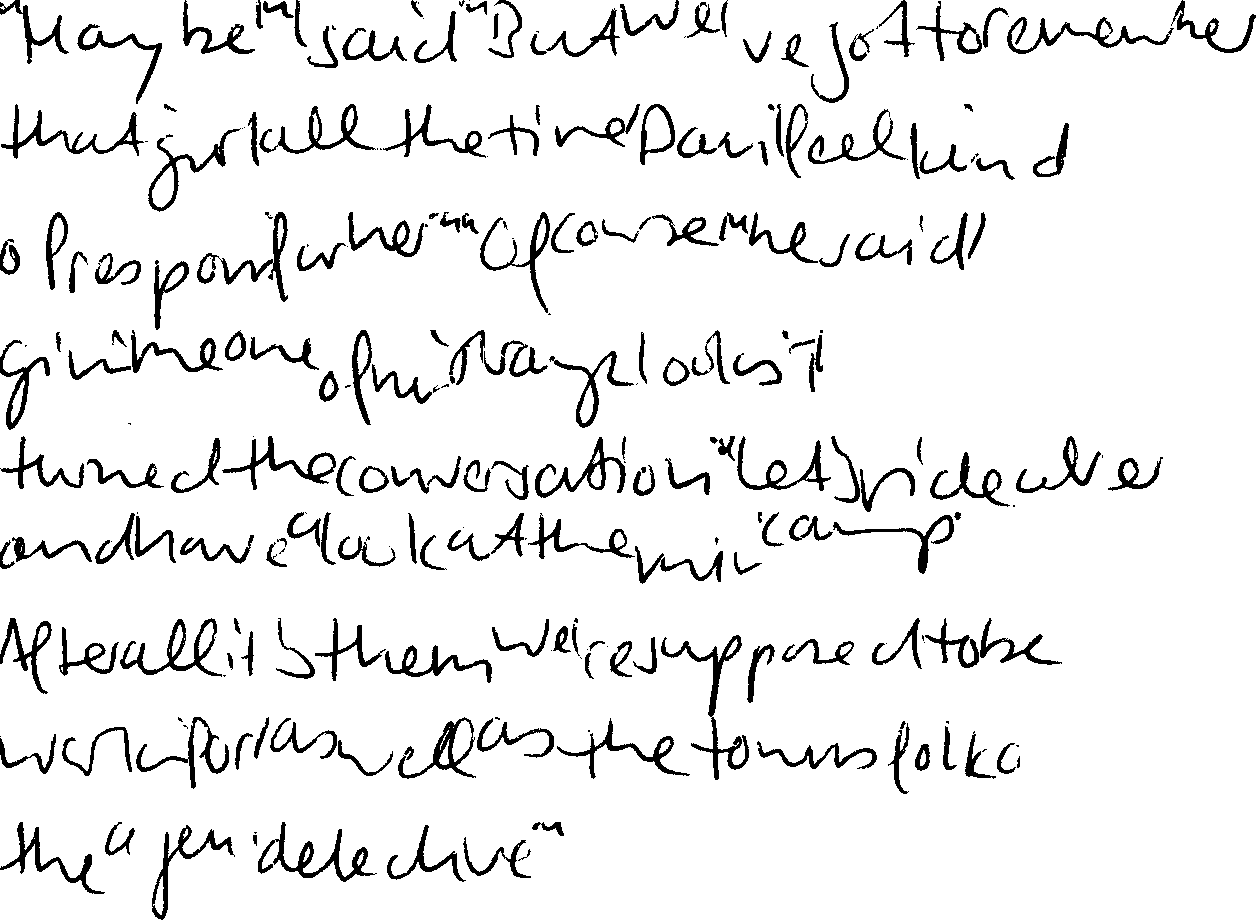 "Maybe" I said "But we've got to remember
that girl all the time Dan I feel kind
of responsible for her" "Of course" he said
givin' me one of his strange looks I
turned the conversation "Let's ride over
and have a look at the minin' camp
After all it's them we're supposed to be
workin' for as well as the townsfolk o
the agen' detective"